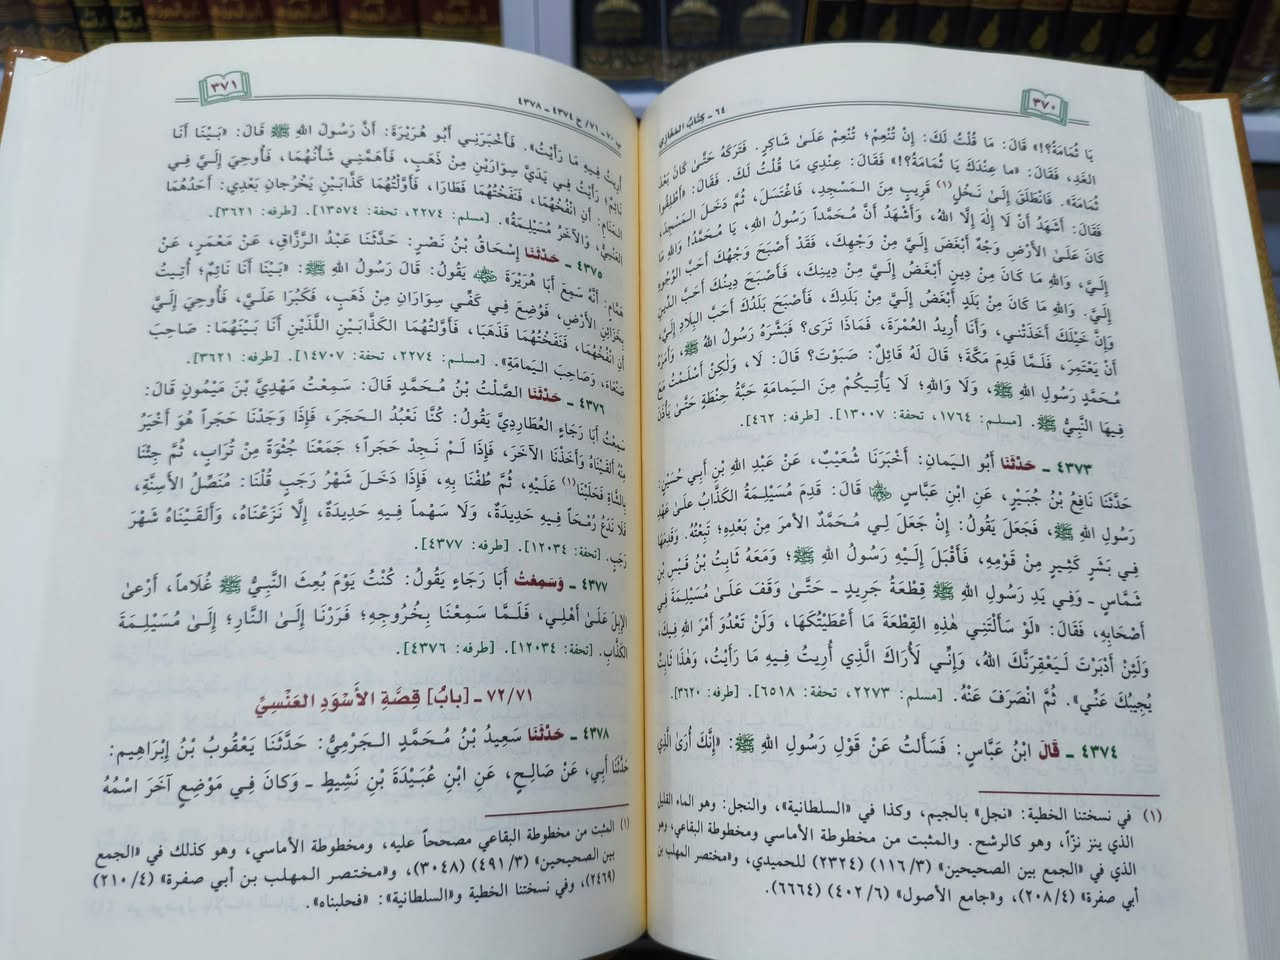 ٣٧٠
٦٤ - كِتَابُ المَغَازِي
يَا ثُمَامَةُ؟!» قَالَ: مَا قُلْتُ لَكَ: إِنْ تُنْعِمْ؛ تُنْعِمْ عَلَىٰ شَاكِرٍ. فَتَرَكَهُ حَتَّىٰ كَانَ بَعْدَ
الغَدِ، فَقَالَ: «ما عِنْدَكَ يَا ثُمَامَةُ؟!» فَقَالَ: عِنْدِي مَا قُلْتُ لَكَ. فَقَالَ: «أَطْلِقُوا
ثُمَامَةَ». فَانْطَلَقَ إِلَىٰ نَخْلٍ(١) قَرِيبٍ مِنَ الـمَسْجِدِ، فَاغْتَسَلَ، ثُمَّ دَخَلَ الـمَسْجِدَ
فَقَالَ: أَشْهَدُ أَنْ لَا إِلٰهَ إِلَّا اللهُ، وَأَشْهَدُ أَنَّ مُحَمَّداً رَسُولُ اللهِ، يَا مُحَمَّدُ! وَاللهِ مَا
كَانَ عَلَىٰ الأَرْضِ وَجْهٌ أَبْغَضَ إِلَيَّ مِنْ وَجْهِكَ، فَقَدْ أَصْبَحَ وَجْهُكَ أَحَبَّ الوُجُوهِ
إِلَيَّ، وَاللهِ مَا كَانَ مِنْ دِينٍ أَبْغَضُ إِلَيَّ مِنْ دِينِكَ، فَأَصْبَحَ دِينُكَ أَحَبَّ الدِّينِ
إِلَيَّ. وَاللهِ مَا كَانَ مِنْ بَلَدٍ أَبْغَضُ إِلَيَّ مِنْ بَلَدِكَ، فَأَصْبَحَ بَلَدُكَ أَحَبَّ البِلَادِ إِلَيَّ،
وَإِنَّ خَيْلَكَ أَخَذَتْنِي، وَأَنَا أُرِيدُ العُمْرَةَ، فَمَاذَا تَرَى؟ فَبَشَّرَهُ رَسُولُ اللهُ ﷺ، وَأَمَرَهُ
أَنْ يَعْتَمِرَ، فَلَمَّا قَدِمَ مَكَّةَ؛ قَالَ لَهُ قَائِلٌ: صَبَوْتَ؟ قَالَ: لَا، وَلٰكِنْ أَسْلَمْتُ مَعَ
مُحَمَّدٍ رَسُولِ اللهِ ﷺ، وَلَا وَاللهِ؛ لَا يَأْتِيكُمْ مِنَ اليَمَامَةِ حَبَّةُ حِنْطَةٍ حَتَّىٰ يَأْذَنَ
فِيهَا النَّبِيُّ ﷺ. [مسلم: ١٧٦٤، تحفة: ١٣٠٠٧]. [طرفه: ٤٦٢].
٤٣٧٣ - حَدَّثَنَا أَبُو اليَمانِ: أَخْبَرَنَا شُعَيْبٌ، عَنْ عَبْدِ اللهِ بْنِ أَبِي حُسَيْنٍ:
حَدَّثَنَا نَافِعُ بْنُ جُبَيْرٍ، عَنِ ابْنِ عَبَّاسٍ ﵄ قَالَ: قَدِمَ مُسَيْلِمَةُ الكَذَّابُ عَلىٰ عَهْدِ
رَسُولِ اللهِ ﷺ، فَجَعَلَ يَقُولُ: إِنْ جَعَلَ لِي مُحَمَّدٌ الأَمرَ مِنْ بَعْدِهِ؛ تَبِعْتُهُ. وَقَدِمَهَا
فِي بَشَرٍ كَثِيرٍ مِنْ قَوْمِهِ، فَأَقْبَلَ إِلَيْهِ رَسُولُ اللهِ ﷺ؛ وَمَعَهُ ثَابِتُ بْنُ قَيْسِ بْنِ
شَمَّاسٍ - وَفِي يَدِ رَسُولِ اللهِ ﷺ قِطْعَةُ جَرِيدٍ - حَتَّىٰ وَقَفَ عَلَىٰ مُسَيْلِمَةَ فِي
أَصْحَابِهِ، فَقَالَ: «لَوْ سَأَلْتَنِي هٰذِهِ القِطْعَةَ مَا أَعْطَيْتُكَهَا، وَلَنْ تَعْدُوَ أَمْرَ اللهِ فِيكَ،
وَلَئِنْ أَدْبَرْتَ لَيَعْقِرَنَّكَ اللهُ، وَإِنِّي لَأُرَاكَ الَّذِي أُرِيتُ فِيهِ مَا رَأَيْتُ، وَهٰذَا ثَابِتٌ
يُجِيبُكَ عَنِّي». ثُمَّ انْصَرَفَ عَنْهُ. [مسلم: ٢٢٧٣، تحفة: ٦٥١٨]. [طرفه: ٣٦٢٠].
٤٣٧٤ - قَالَ ابْنُ عَبَّاسٍ: فَسَأَلتُ عَنْ قَوْلِ رَسُولِ اللهِ ﷺ: «إِنَّكَ أُرَىٰ الَّذِي
(١) في نسختنا الخطية: «نجل» بالجيم، وكذا في «السلطانية»، والنجل: وهو الماء القليل
الذي ينز نزّاً، وهو كالرشح. والمثبت من مخطوطة الأماسي ومخطوطة البقاعي، وهو
الذي في «الجمع بين الصحيحين» (٣/١١٦) (٢٣٢٤) للحميدي، و«مختصر المهلب بن
أبي صفرة» (٤/٢٠٨)، و«جامع الأصول» (٦/٤٠٢) (٦٦٦٤).
٣٧١
٧٠ - ٧١/ ح ٤٣٧٤ - ٤٣٧٨
أُرِيتُ فِيهِ مَا رَأَيْتُ». فَأَخْبَرَنِي أَبُو هُرَيْرَةَ: أَنَّ رَسُولَ اللهِ ﷺ قَالَ: «بَيْنَا أَنَا
نَائِمٌ؛ رَأَيْتُ فِي يَدَيَّ سِوَارَيْنِ مِنْ ذَهَبٍ، فَأَهَمَّنِي شَأْنُهُمَا، فَأُوحِيَ إِلَيَّ فِي
الـمَنَامِ: أَنِ انْفُخْهُمَا، فَنَفَخْتُهُمَا فَطَارَا، فَأَوَّلْتُهُمَا كَذَّابَيْنِ يَخْرُجانِ بَعْدِي: أَحَدُهُمَا
العَنْسِيُّ، وَالآخَرُ مُسَيْلِمَةُ». [مسلم: ٢٢٧٤، تحفة: ١٣٥٧٤]. [طرفه: ٣٦٢١].
٤٣٧٥ - حَدَّثَنَا إِسْحَاقُ بْنُ نَصْرٍ: حَدَّثَنَا عَبْدُ الرَّزَّاقِ، عَنْ مَعْمَرٍ، عَنْ
هَمَّامٍ: أَنَّهُ سَمِعَ أَبَا هُرَيْرَةَ ﵁ يَقُولُ: قَالَ رَسُولُ اللهِ ﷺ: «بَيْنَا أَنَا نَائِمٌ؛ أُتِيتُ
بِخَزَائِنِ الأَرْضِ، فَوُضِعَ فِي كَفِّي سِوَارَانِ مِنْ ذَهَبٍ، فَكَبُرَا عَلَيَّ، فَأُوحِيَ إِلَيَّ
أَنِ انْفُخْهُمَا، فَنَفَخْتُهُمَا فَذَهَبَا، فَأَوَّلتُهُمَا الكَذَّابَيْنِ اللَّذَيْنِ أَنَا بَيْنَهُمَا: صَاحِبَ
صَنْعَاءَ، وَصَاحِبَ اليَمامَةِ». [مسلم: ٢٢٧٤، تحفة: ١٤٧٠٧]. [طرفه: ٣٦٢١].
٤٣٧٦ - حَدَّثَنَا الصَّلْتُ بْنُ مُحَمَّدٍ قَالَ: سَمِعْتُ مَهْدِيَّ بْنَ مَيْمُونٍ قَالَ:
سَمِعتُ أَبَا رَجَاءٍ العُطَارِدِيَّ يَقُولُ: كُنَّا نَعْبُدُ الـحَجَرَ، فَإِذَا وَجَدْنَا حَجَراً هُوَ أَخْيَرُ
مِنْهُ أَلقَيْنَاهُ وَأَخَذْنَا الآخَرَ، فَإِذَا لَمْ نَجِدْ حَجَراً؛ جَمَعْنَا جُثْوَةً مِنْ تُرَابٍ، ثُمَّ جِئْنَا
بِالشَّاةِ فَحَلَبْنَا(١) عَلَيْهِ، ثُمَّ طُفْنَا بِهِ، فَإِذَا دَخَلَ شَهْرُ رَجَبٍ قُلْنَا: مُنَصِّلُ الأَسِنَّةِ،
فَلَا نَدَعُ رُمْحاً فِيهِ حَدِيدَةٌ، وَلَا سَهْماً فِيهِ حَدِيدَةٌ، إِلَّا نَزَعْنَاهُ، وَأَلقَيْنَاهُ شَهْرَ
رَجَبٍ. [تحفة: ١٢٠٣٤]. [طرفه: ٤٣٧٧].
٤٣٧٧ - وَسَمِعْتُ أَبَا رَجَاءٍ يَقُولُ: كُنْتُ يَوْمَ بُعِثَ النَّبِيُّ ﷺ غُلَاماً، أَرْعىٰ
الإِبِلَ عَلَىٰ أَهْلِي، فَلَمَّا سَمِعْنَا بِخُرُوجِهِ؛ فَرَرْنَا إِلَىٰ النَّارِ؛ إِلَىٰ مُسَيْلِمَةَ
الكَذَّابِ. [تحفة: ١٢٠٣٤]. [طرفه: ٤٣٧٦].
٧١/ ٧٢ - [بابُ] قِصَّةِ الأَسْوَدِ العَنْسِيِّ
٤٣٧٨ - حَدَّثَنَا سَعِيدُ بْنُ مُحَمَّدٍ الـجَرْمِيُّ: حَدَّثَنَا يَعْقُوبُ بْنُ إِبْرَاهِيم:
حَدَّثَنَا أَبِي، عَنْ صَالِحٍ، عَنِ ابْنِ عُبَيْدَةَ بْنِ نَشِيطٍ - وَكانَ فِي مَوْضِعٍ آخَرَ اسْمُهُ
(١) المثبت من مخطوطة البقاعي مصححاً عليه، ومخطوطة الأماسي، وهو كذلك في «الجمع
بين الصحيحين» (٣/٤٩١) (٣٠٤٨)، و«مختصر المهلب بن أبي صفرة» (٤/٢١٠)
(٢٤٦٩)، وفي نسختنا الخطية و«السلطانية»: «فحلبناه».